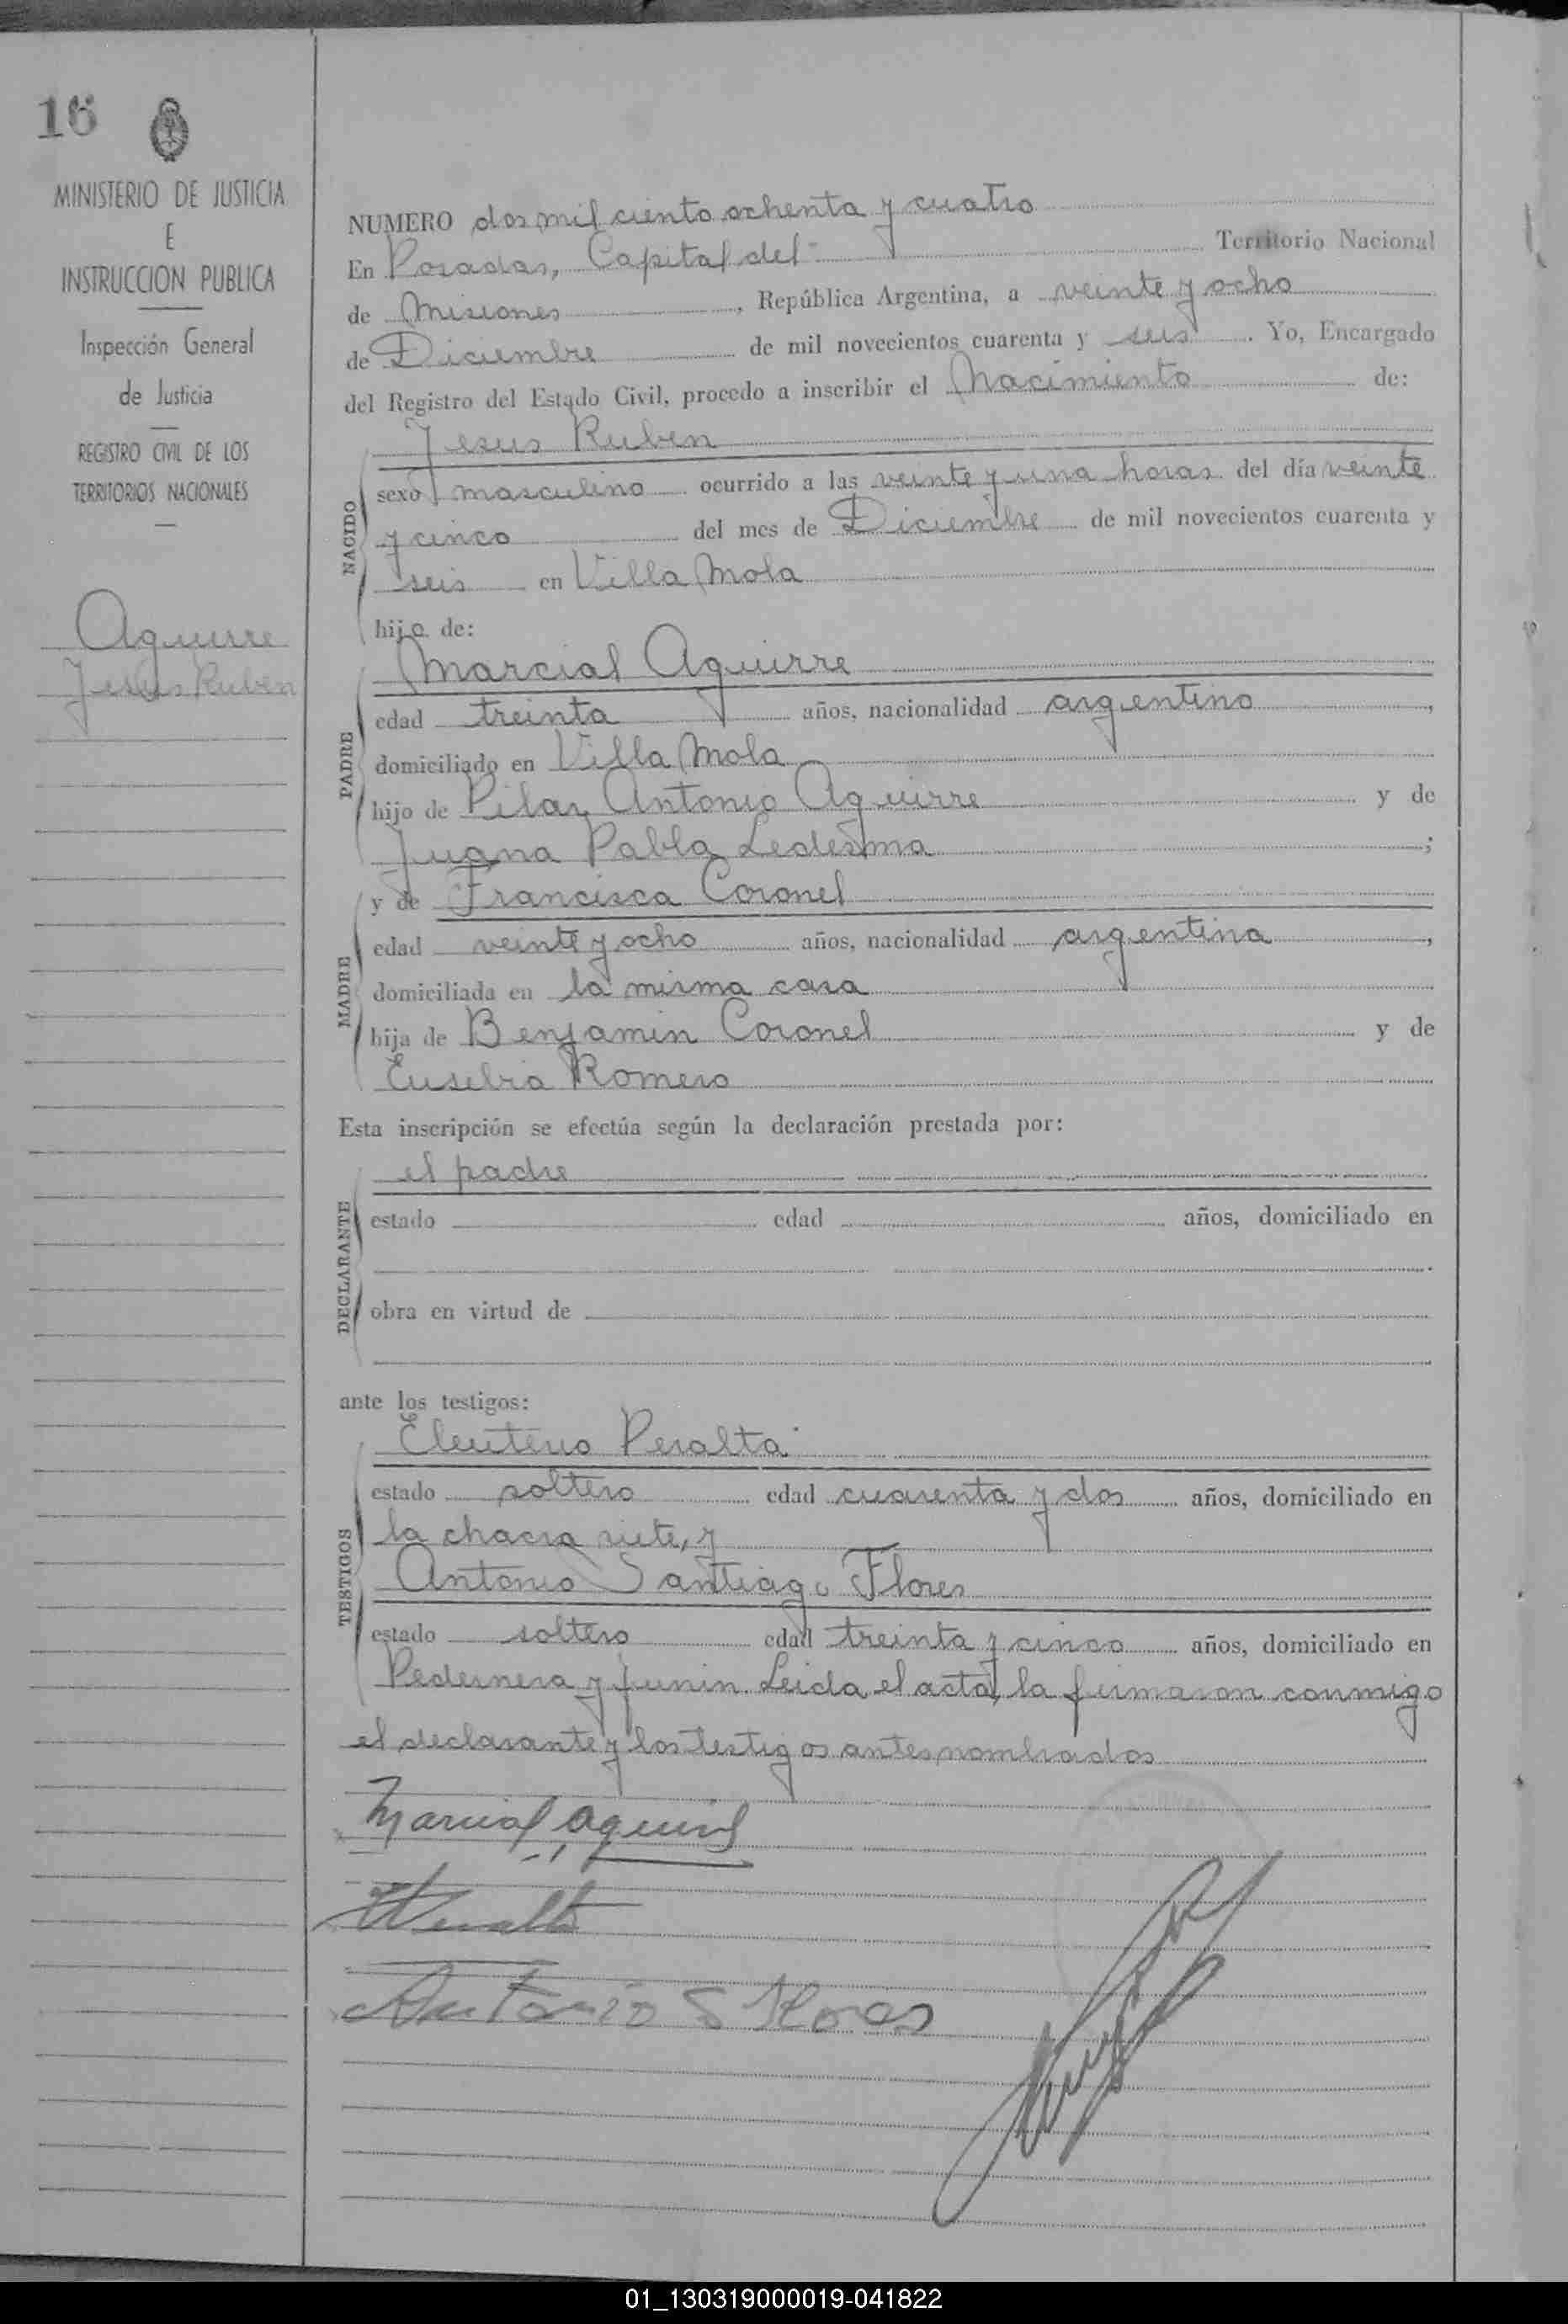 16
MINISTERIO DE JUSTICIA
E
INSTRUCCION PUBLICA
Inspección General
de Justicia
REGISTRO CIVIL DE LOS
TERRITORIOS NACIONALES
Aguirre
Jesus Ruben
NUMERO dos mil ciento ochenta y cuatro
En Posadas, Capital del Territorio Nacional
de Misiones, República Argentina, a veinte y ocho
de Diciembre de mil novecientos cuarenta y seis. Yo, Encargado
del Registro del Estado Civil, procedo a inscribir el Nacimiento de:
Jesus Ruben
NACIDO
sexo masculino ocurrido a las veinte y una horas del día veinte
y cinco del mes de Diciembre de mil novecientos cuarenta y
seis en Villa Mola
hijo de:
Marcial Aguirre
PADRE
edad treinta años, nacionalidad argentino,
domiciliado en Villa Mola
hijo de Pilar Antonio Aguirre y de
Juana Pabla Ledesma;
y de Francisca Coronel
MADRE
edad veinte y ocho años, nacionalidad argentina,
domiciliada en la misma casa
hija de Benjamin Coronel y de
Eusebia Romero
Esta inscripción se efectúa según la declaración prestada por:
el padre
DECLARANTE
estado edad años, domiciliado en
obra en virtud de
ante los testigos:
Eleuterio Peralta
TESTIGOS
estado soltero edad cuarenta y dos años, domiciliado en
la chacra siete, y
Antonio Santiago Flores
estado soltero edad treinta y cinco años, domiciliado en
Pedernera y Junin. Leida el acta, la firmaron conmigo
el declarante y los testigos antes nombrados
Marcial Aguirre
Peralta
Antonio S Flores
01_130319000019-041822